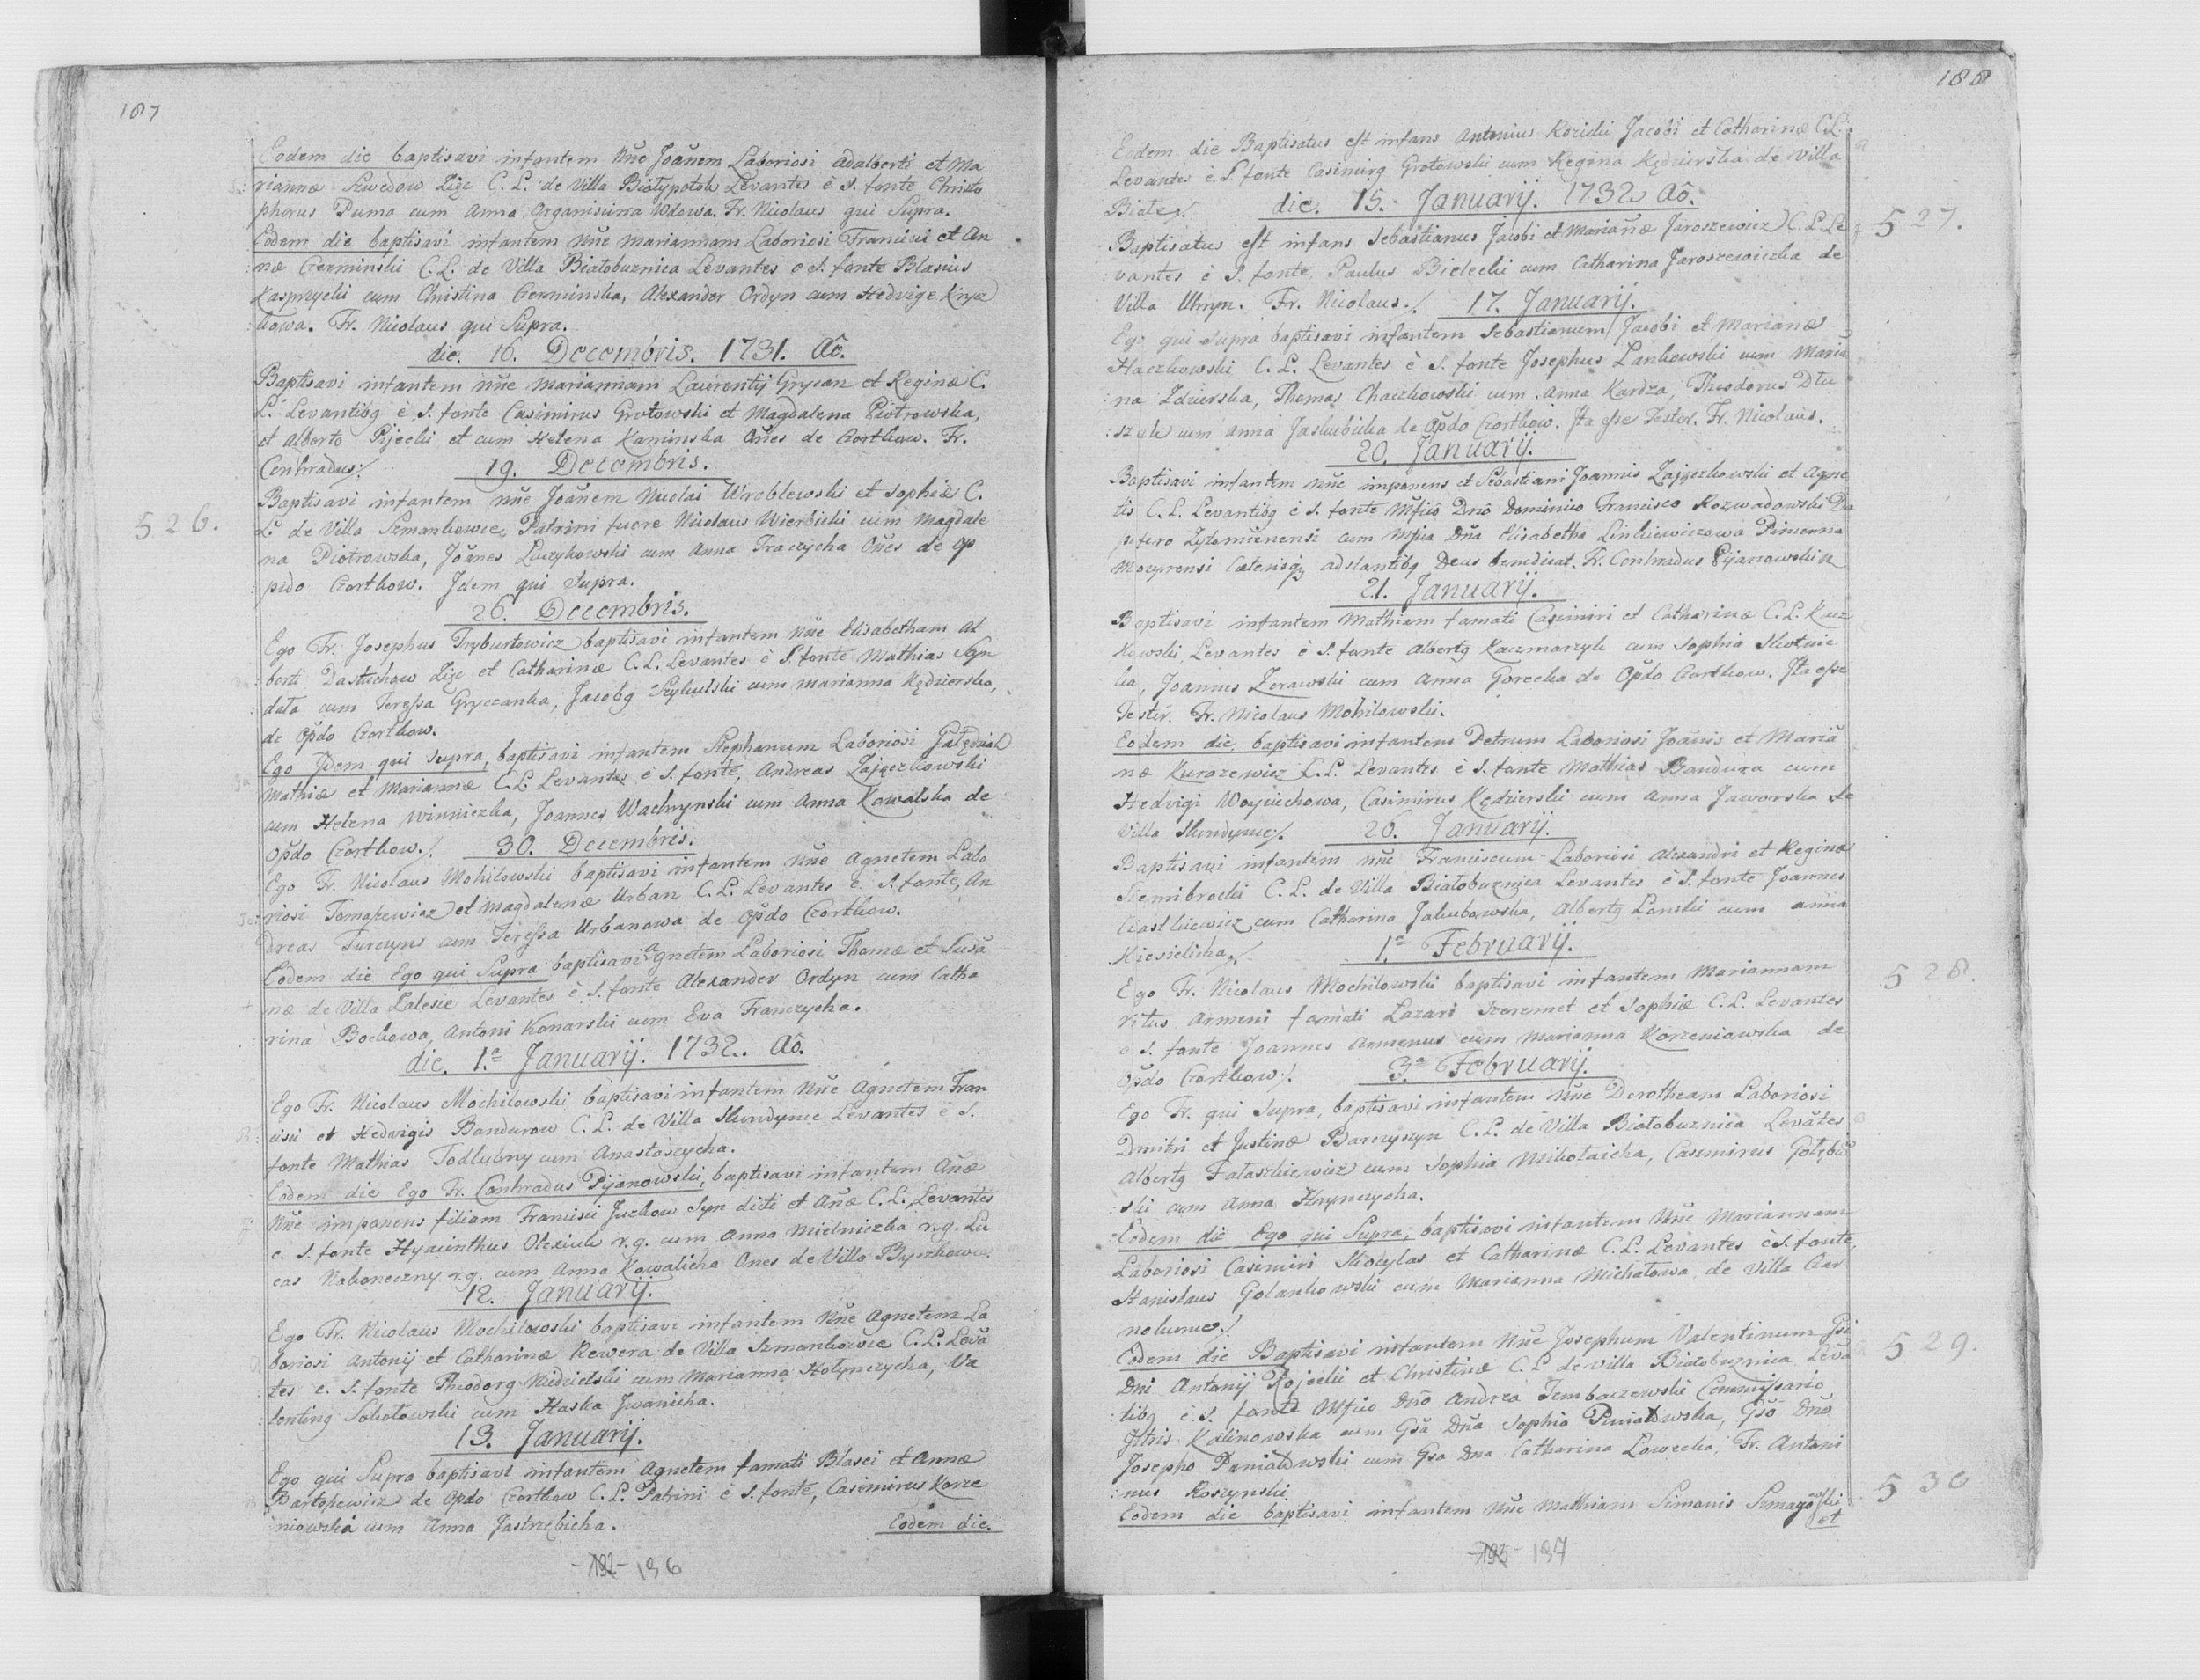 187
Eodem die baptisavi infantem nñe Joãnem Laboriosi Adalberti et Ma
riannæ Szwedow Zięc C. L. de Villa Białypotok Levantes è S. fonte Christo
phorus Puma cum Anna Organiscina Wdowa. Fr. Nicolaus qui Supra.
Eodem die baptisavi infantem nñe Mariannam Laboriosi Francisci et An
næ Czerminski C. L. de Villa Białobuznica Levantes e S. fonte Blasius
Kasprzycki cum Christina Czerminska, Alexander Ordyn cum Hedvige Krycz
kowa. Fr. Nicolaus qui Supra.
die. 16. Decembris. 1731. Aõ.
Baptisavi infantem nñe Mariannam Laurentij Grycan et Reginæ C.
L. Levantibq è S. fonte Casimirus Grotowski et Magdalena Piotrowska,
et Alberto Pijecki et cum Helena Kaminska Oñes de Czortkow. Fr.
Conhradus ·/.
19. Decembris.
526.
Baptisavi infantem nñe Joãnem Nicolai Wroblewski et Sophiæ C.
L. de Villa Szmankowce, Patrini fuere Nicolaus Wierbicki cum Magdale
na Piotrowska, Joãnes Luczykowski cum Anna Traczycha Oñes de Op
pido Czortkow. Jdem qui Supra.
26. Decembris.
Ego Fr. Josephus Tryburtowicz baptisavi infantem nñe Elisabetham Al
berti Dastuchow Zięc et Catharinæ C. L. Levantes è S. fonte Mathias Syn
data cum Teressa Gryczanka, Jacobq Szykulski cum Marianna Kędzierska,
de Opdo Czortkow.
Ego Jdem qui Supra, baptisavi infantem Stephanum Laboriosi
Mathiæ et Mariannæ C. L. Levantes è S. fonte, Andreas Zajączkowski
cum Helena Winniczka, Joannes Wachnynski cum Anna Kowalska de
Opdo Czortkow ·/.
30. Decembris.
Ego Fr. Nicolaus Mohilowski baptisavi infantem nñe Agnetem Labo
riosi Tomaszewicz et Magdalenæ Urban C. L. Levantes è S. fonte, An
dreas Turczyns cum Teressa Urbanowa de Opdo Czortkow.
Eodem die Ego qui Supra baptisavi Agnetem Laboriosi Thomæ et Susã
næ de Villa Zalesie Levantes è S. fonte Alexander Ordyn cum Catha
rina Bockowa, Antoni Konarski cum Eva Franczycha.
die. 1.ª Januarij. 1732. Aõ.
Ego Fr. Nicolaus Mochilowski baptisavi infantem nñe Agnetem Fran
cisci et Hedvigis Bandurow C. L. de Villa Skundynce Levantes è S.
fonte Mathias Todlubny cum Anastaszycha.
Eodem die Ego Fr. Conhradus Pijanowski, baptisavi infantem Añæ
nñe imponens filiam Francisci Juchow Syn dicti et Añæ C. L., Levantes
e. S. fonte Hyacinthus Olexiuk r. g. cum Anna Mielniczka r. g. Lu
cas Nakoneczny r. g. cum Anna Kowalicha Ones de Villa Byczkowce.
12. Januarij.
Ego Fr. Nicolaus Mochilowski baptisavi infantem nñe Agnetem La
boriosi Antonij et Catharinæ Rewera de Villa Szmankowce C. L. Levã
tes e. S. fonte Theodorq Nidzielski cum Marianna Hołynczycha, Va
lentinq Sokołowski cum Haska Jwanicha.
13. Januarij.
Ego qui Supra baptisavi infantem Agnetem famati Blasei et Annæ
Bartoszewicz de Opdo Czortkow C. L. Patrini è S. fonte, Casimirus Korze
niowski cum Anna Jastrzębicha.
Eodem die.
136
188
Eodem die Baptisatus est infans Antonius Kozicki Jacobi et Catharinæ C. L.
Levantes è. S. fonte Casimirq Grotowski cum Regina Kędzierska de Villa
Białe ·/.
die. 15. Januarij. 1732. Aõ.
Baptisatus est infans Sebastianus Jacobi et Mariañæ Jaroszewicz C. L. Le
527.
vantes è S. fonte Paulus Bielecki cum Catharina Jaroszewiczka de
Villa Uhryn. Fr. Nicolaus ·/.
17. Januarij.
Ego qui Supra baptisavi infantem Sebastianum Jacobi et Marianæ
Haczkowski C. L. Levantes è S. fonte Josephus Zankowski cum Maria
na Zdzierska, Thomas Chaczkowski cum Anna Kardza, Theodorus Dłu
szek cum Anna Jaskubicka de Opdo Czortkow. Jta esse Testor. Fr. Nicolaus.
20. Januarij.
Baptisavi infantem nñe imponens et Sebastiani Joannis Zajączkowski et Agne
tis C. L. Levantibq è S. fonte Mfico Dno Dominico Francisco Rozwadowski Da
pifero Zytomirensi cum Mfica Dña Elisabetha Linkiewiczowa Pincerna
Mozyrensi Cæterisq adstantibq Deus benedicat. Fr. Conhradus Pijanowski
21. Januarij.
Baptisavi infantem Mathiam famati Casimiri et Catharinæ C. L. Kacz
kowski, Levantes è S. fonte Albertq Kaczmarzyk cum Sophia Skotnic
ka, Joannes Zerawski cum Anna Gorecka de Opdo Czortkow. Jta esse
Testor. Fr. Nicolaus Mohilowski.
Eodem die, baptisavi infantem Petrum Laboriosi Joãnis et Mariã
næ Kurazewicz C. L. Levantes è S. fonte Mathias Bandura cum
Hedvigi Woyciechowa, Casimirus Kędzierski cum Anna Jaworska de
Villa Skundynce ·/.
26. Januarij.
Baptisavi infantem nñe Franciscum Laboriosi Alexandri et Reginæ
Siemibrocki C. L. de Villa Białobuznica Levantes è S. fonte Joannes
Ciastkiewicz cum Catharina Jakubowska, Albertq Lanski cum Anna
Kiesielicha ·/.
1.ª Februarij.
Ego Fr. Nicolaus Mochilowski baptisavi infantem Mariannam
528.
ritus Armeni famati Lazari Szeremet et Sophiæ C. L. Levantes
e S. fonte Joannes Armenus cum Marianna Korzeniowska de
Opdo Czortkow ·/.
3.ª Februarij.
Ego Fr. qui Supra, baptisavi infantem nñe Dorotheam Laboriosi
Dmitri et Justinæ Barczyszyn C. L. de Villa Białobuznica Levãtes
Albertq Fataszkiewicz cum Sophia Mikołaicha, Casimirus Gołębio
ski cum Anna Hrynczycha.
Eodem die Ego qui Supra, baptisavi infantem nñe Mariannam
Laboriosi Casimiri Skoczylas et Catharinæ C. L. Levantes e S. fonte,
Stanislaus Golankowski cum Marianna Michałowa de Villa Czar
nokunce ·/.
Eodem die Baptisavi infantem nñe Josephum Valentinum Gsi
529.
Dni Antonij Rojecki et Christinæ C. L. de villa Białobuznica Levã
tibq è. S. fonte Mfico Dno Andrea Tembaczewski Commissario
Jltris Kalinowska cum Gsa Dña Sophia Puniatowska, Gso Dno
Josepho Puniatowski cum Gsa Dna Catharina Łowecka, Fr. Antoni
nus Koszynski
530
Eodem die baptisavi infantem nñe Mathiam Simonis Szmagolski
et
137